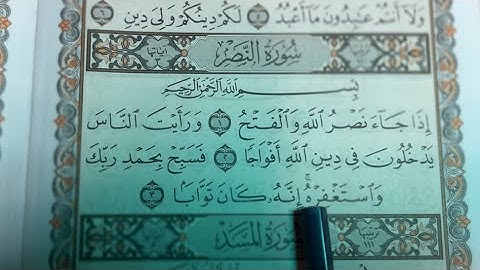 وَلَآ أَنتُمْ عَـٰبِدُونَ مَآ أَعْبُدُ ۝ لَكُمْ دِينُكُمْ وَلِىَ دِينِ ۝
سُورَةُ النَّصْرِ
بِسْمِ اللَّهِ الرَّحْمَـٰنِ الرَّحِيمِ
إِذَا جَآءَ نَصْرُ اللَّهِ وَالْفَتْحُ ۝١ وَرَأَيْتَ النَّاسَ
يَدْخُلُونَ فِى دِينِ اللَّهِ أَفْوَاجًا ۝٢ فَسَبِّحْ بِحَمْدِ رَبِّكَ
وَاسْتَغْفِرْهُ ۚ إِنَّهُۥ كَانَ تَوَّابًا ۝٣
سُورَةُ المَسَدِ